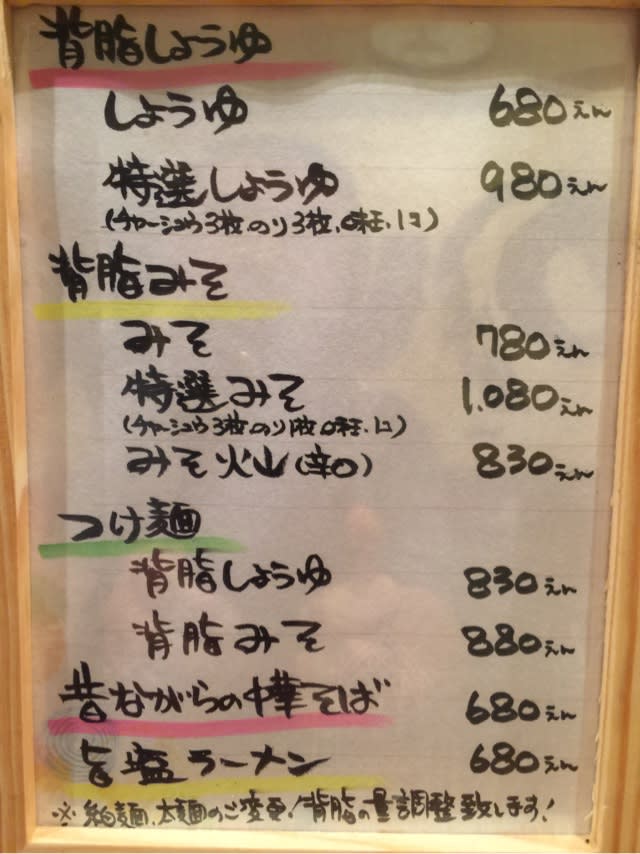 背脂しょうゆ
しょうゆ 680えん
特選しょうゆ 980えん
(チャーシュウ3枚、のり3枚、味玉、1コ)
背脂みそ
みそ 780えん
特選みそ 1,080えん
(チャーシュウ3枚、のり1枚、味玉、1コ)
みそ火山(辛口) 830えん
つけ麺
背脂しょうゆ 830えん
背脂みそ 880えん
昔ながらの中華そば 680えん
旨塩ラーメン 680えん
※細麺、太麺のご変更!背脂の量調整致します!